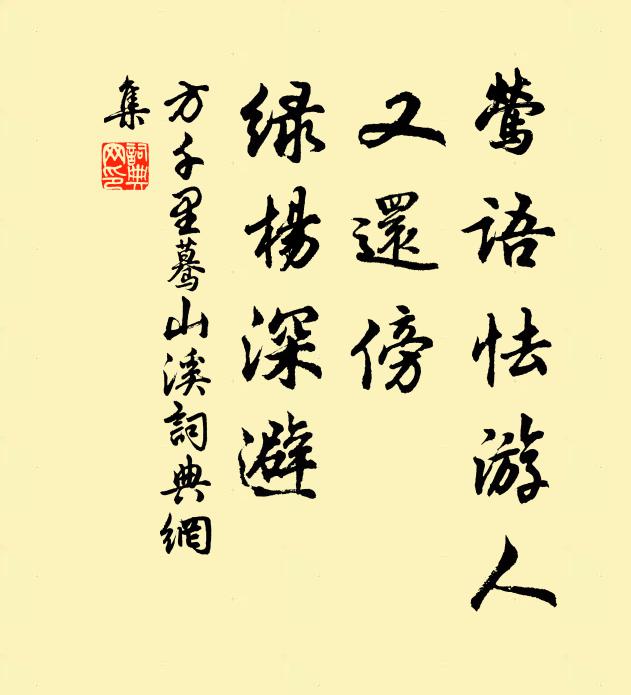 莺語怯游人
又還傍
緑楊深避
方千里蓦山溪詞典網
集
詞典
网印